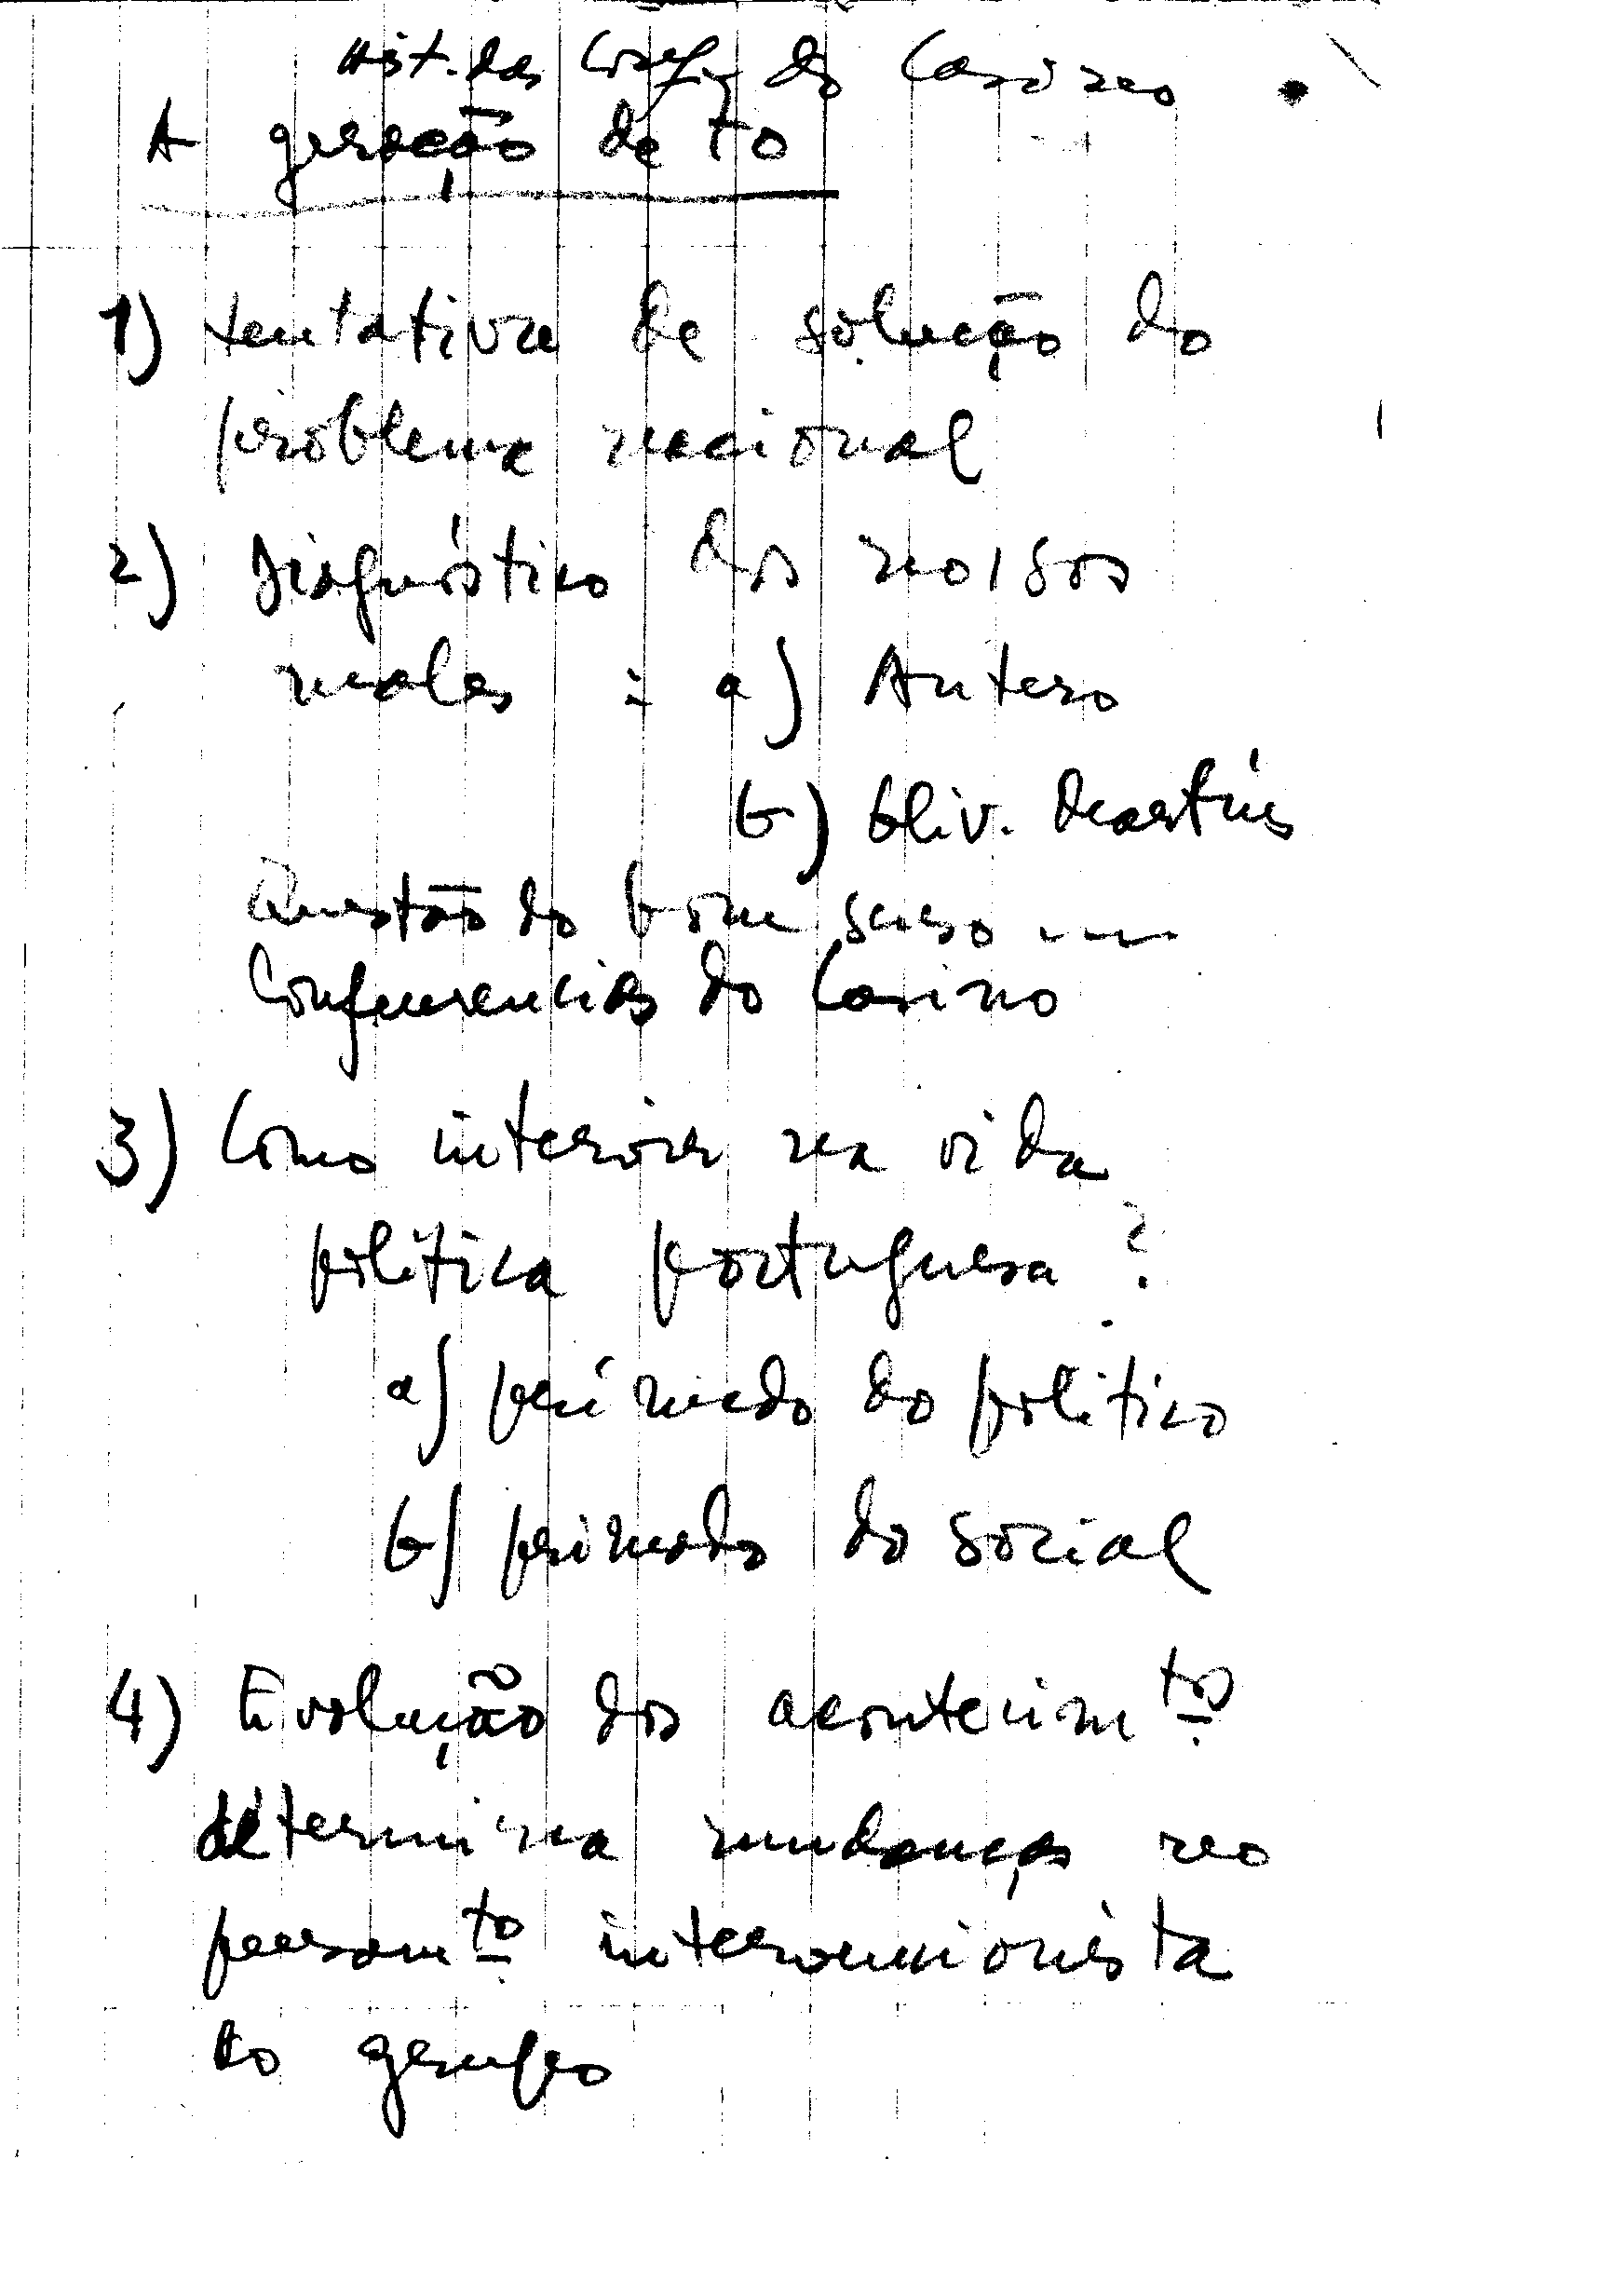 Hist. das Conf. do Casino
A geração de 70
1) tentativa de solução do
problema nacional
2) Diagnóstico dos nossos
males : a) Antero
b) Oliv. Martins
Questão do bom senso ...
Conferencias do Casino
3) Como intervir na vida
política portuguesa ?
a) primado do politico
b) primado do social
4) Evolução dos acontecimtos
determina mudanças no
pensamto intervencionista
do grupo